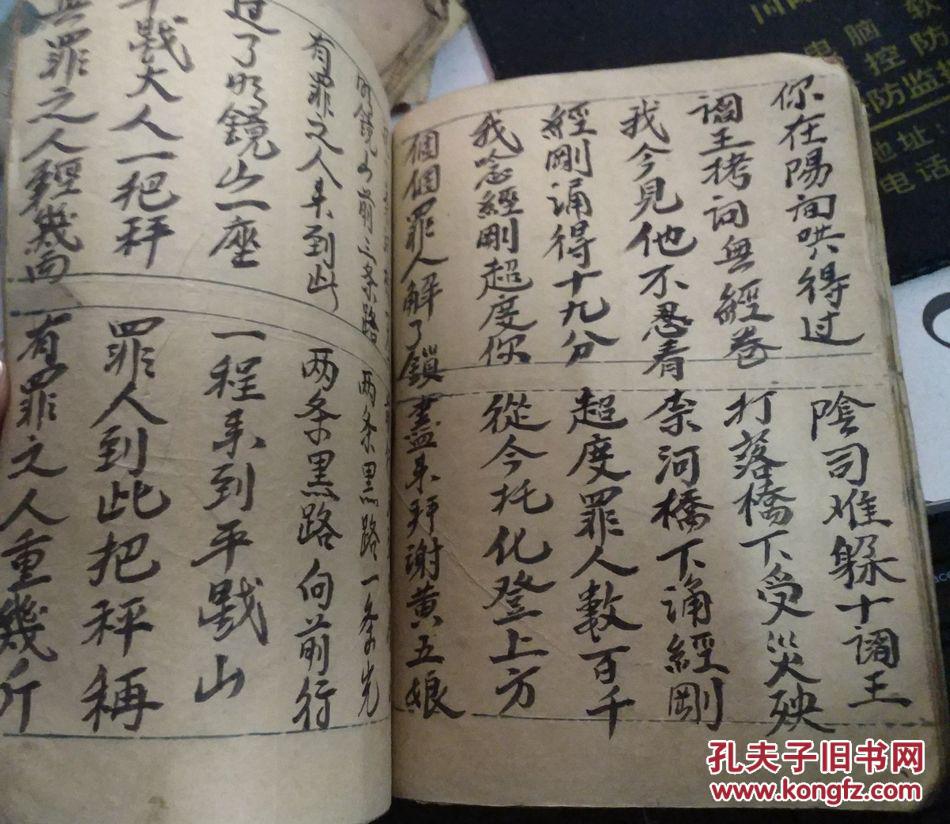 你在陽间哄得过
陰司难躲十閻王
閻王拷问無經卷
打落橋下受災殃
我今見他不忍看
柰河橋下誦經剛
經剛誦得十九分
超度罪人數百千
我念經剛超度你
從今托化登上方
個個罪人解了鎖
盡来拜謝黄五娘
鏡山前三条路
两条黑路一条光
有罪之人来到此
两条黑路向前行
过了明鏡山一座
一程来到平戥山
戥大人一把秤
罪人到此把秤稱
罪之人輕幾両
有罪之人重幾斤
电脑
控防
防监
地址
电话
孔夫子旧书网
www.kongfz.com